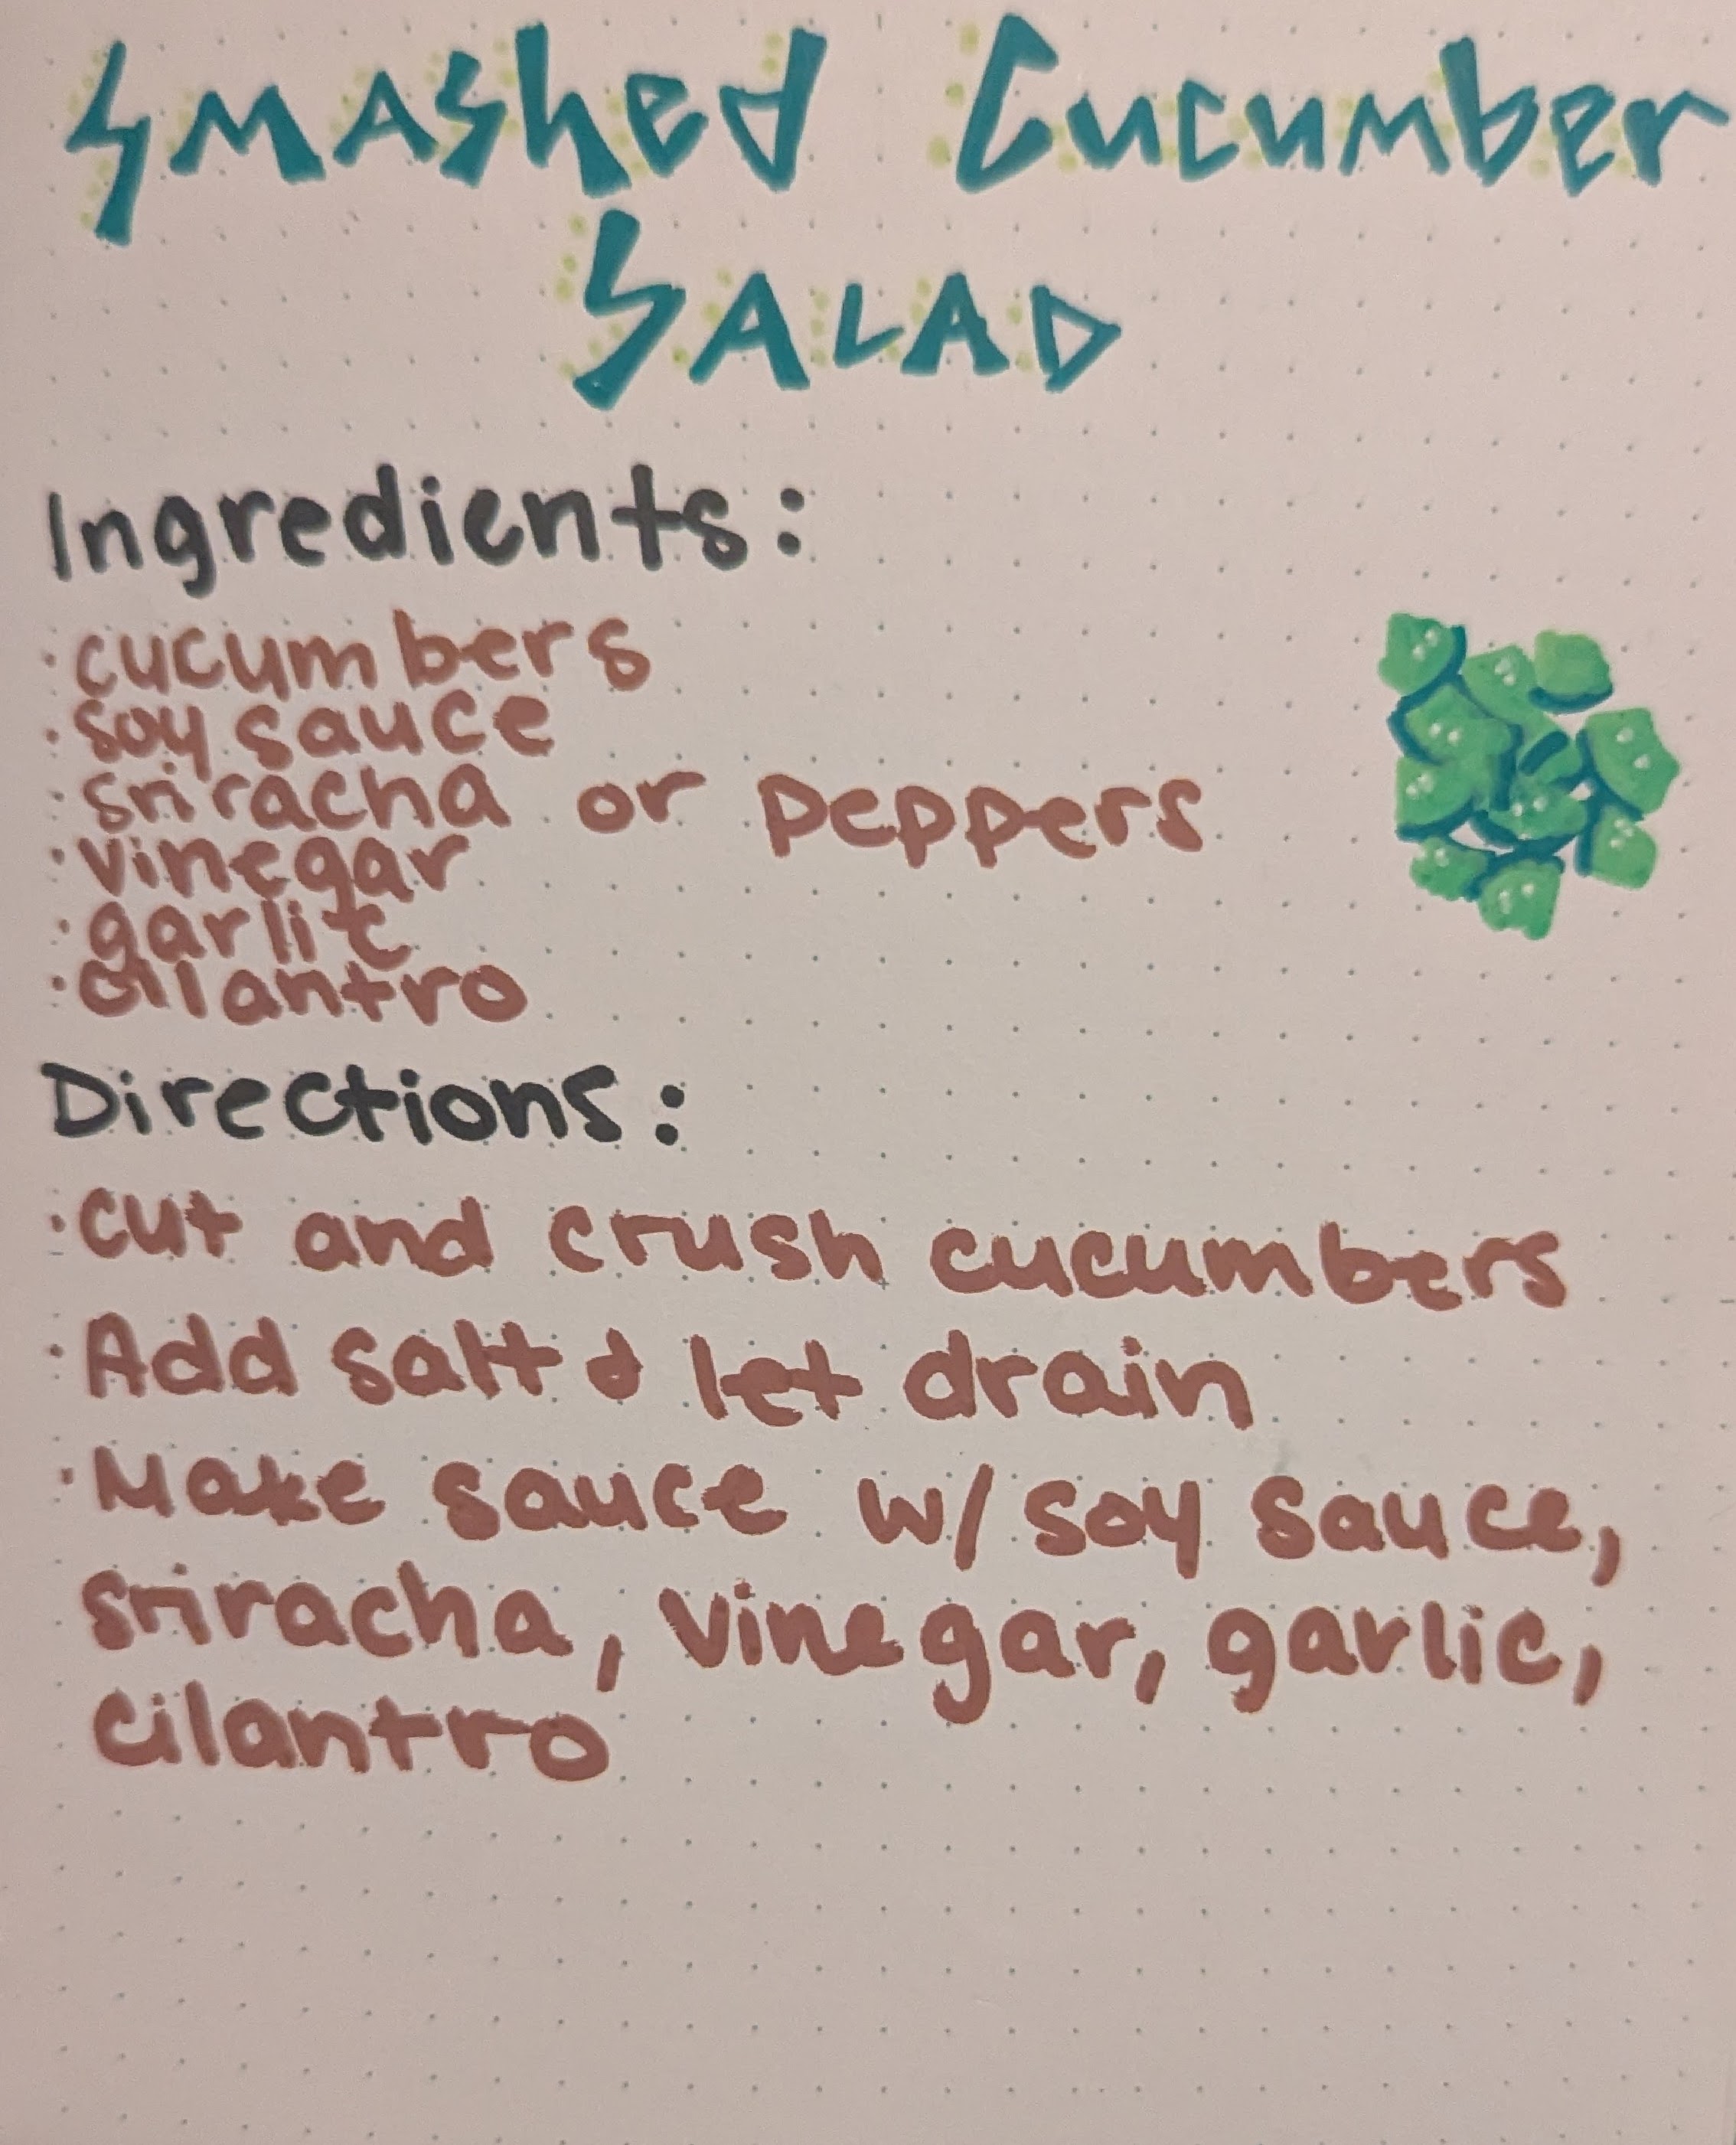 Smashed Cucumber
Salad
Ingredients:
· cucumbers
· soy sauce
· sriracha or peppers
· vinegar
· garlic
· cilantro
Directions:
· cut and crush cucumbers
· Add salt & let drain
· Make sauce w/ soy sauce,
sriracha, vinegar, garlic,
cilantro